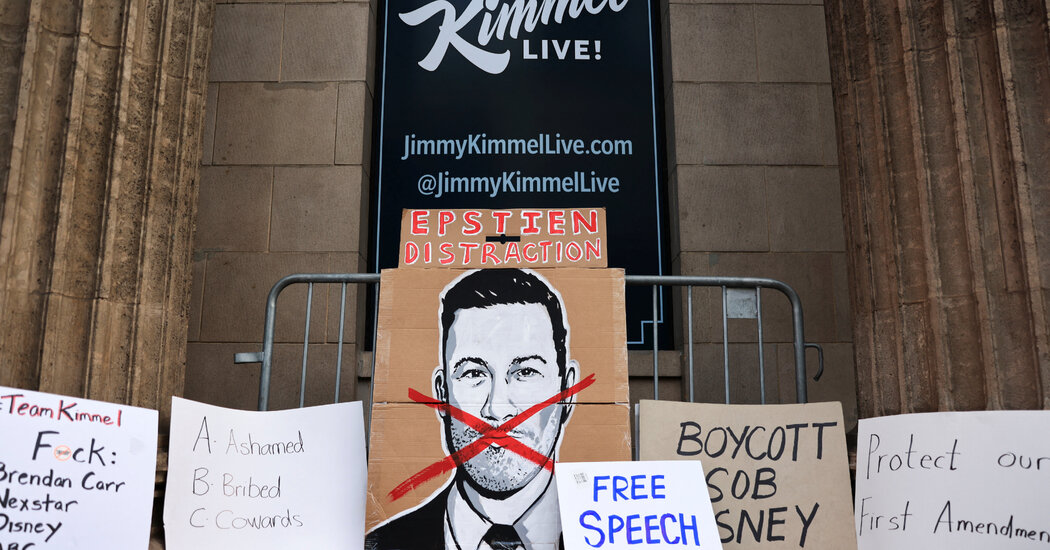 Kimmel
LIVE!
JimmyKimmelLive.com
@JimmyKimmelLive
EPSTIEN
DISTRACTION
#TeamKimmel
F ck:
Brendan Carr
Nexstar
Disney
ABC
A. Ashamed
B. Bribed
C. Cowards
FREE
SPEECH
BOYCOTT
SOB
Protect our
First Amendment